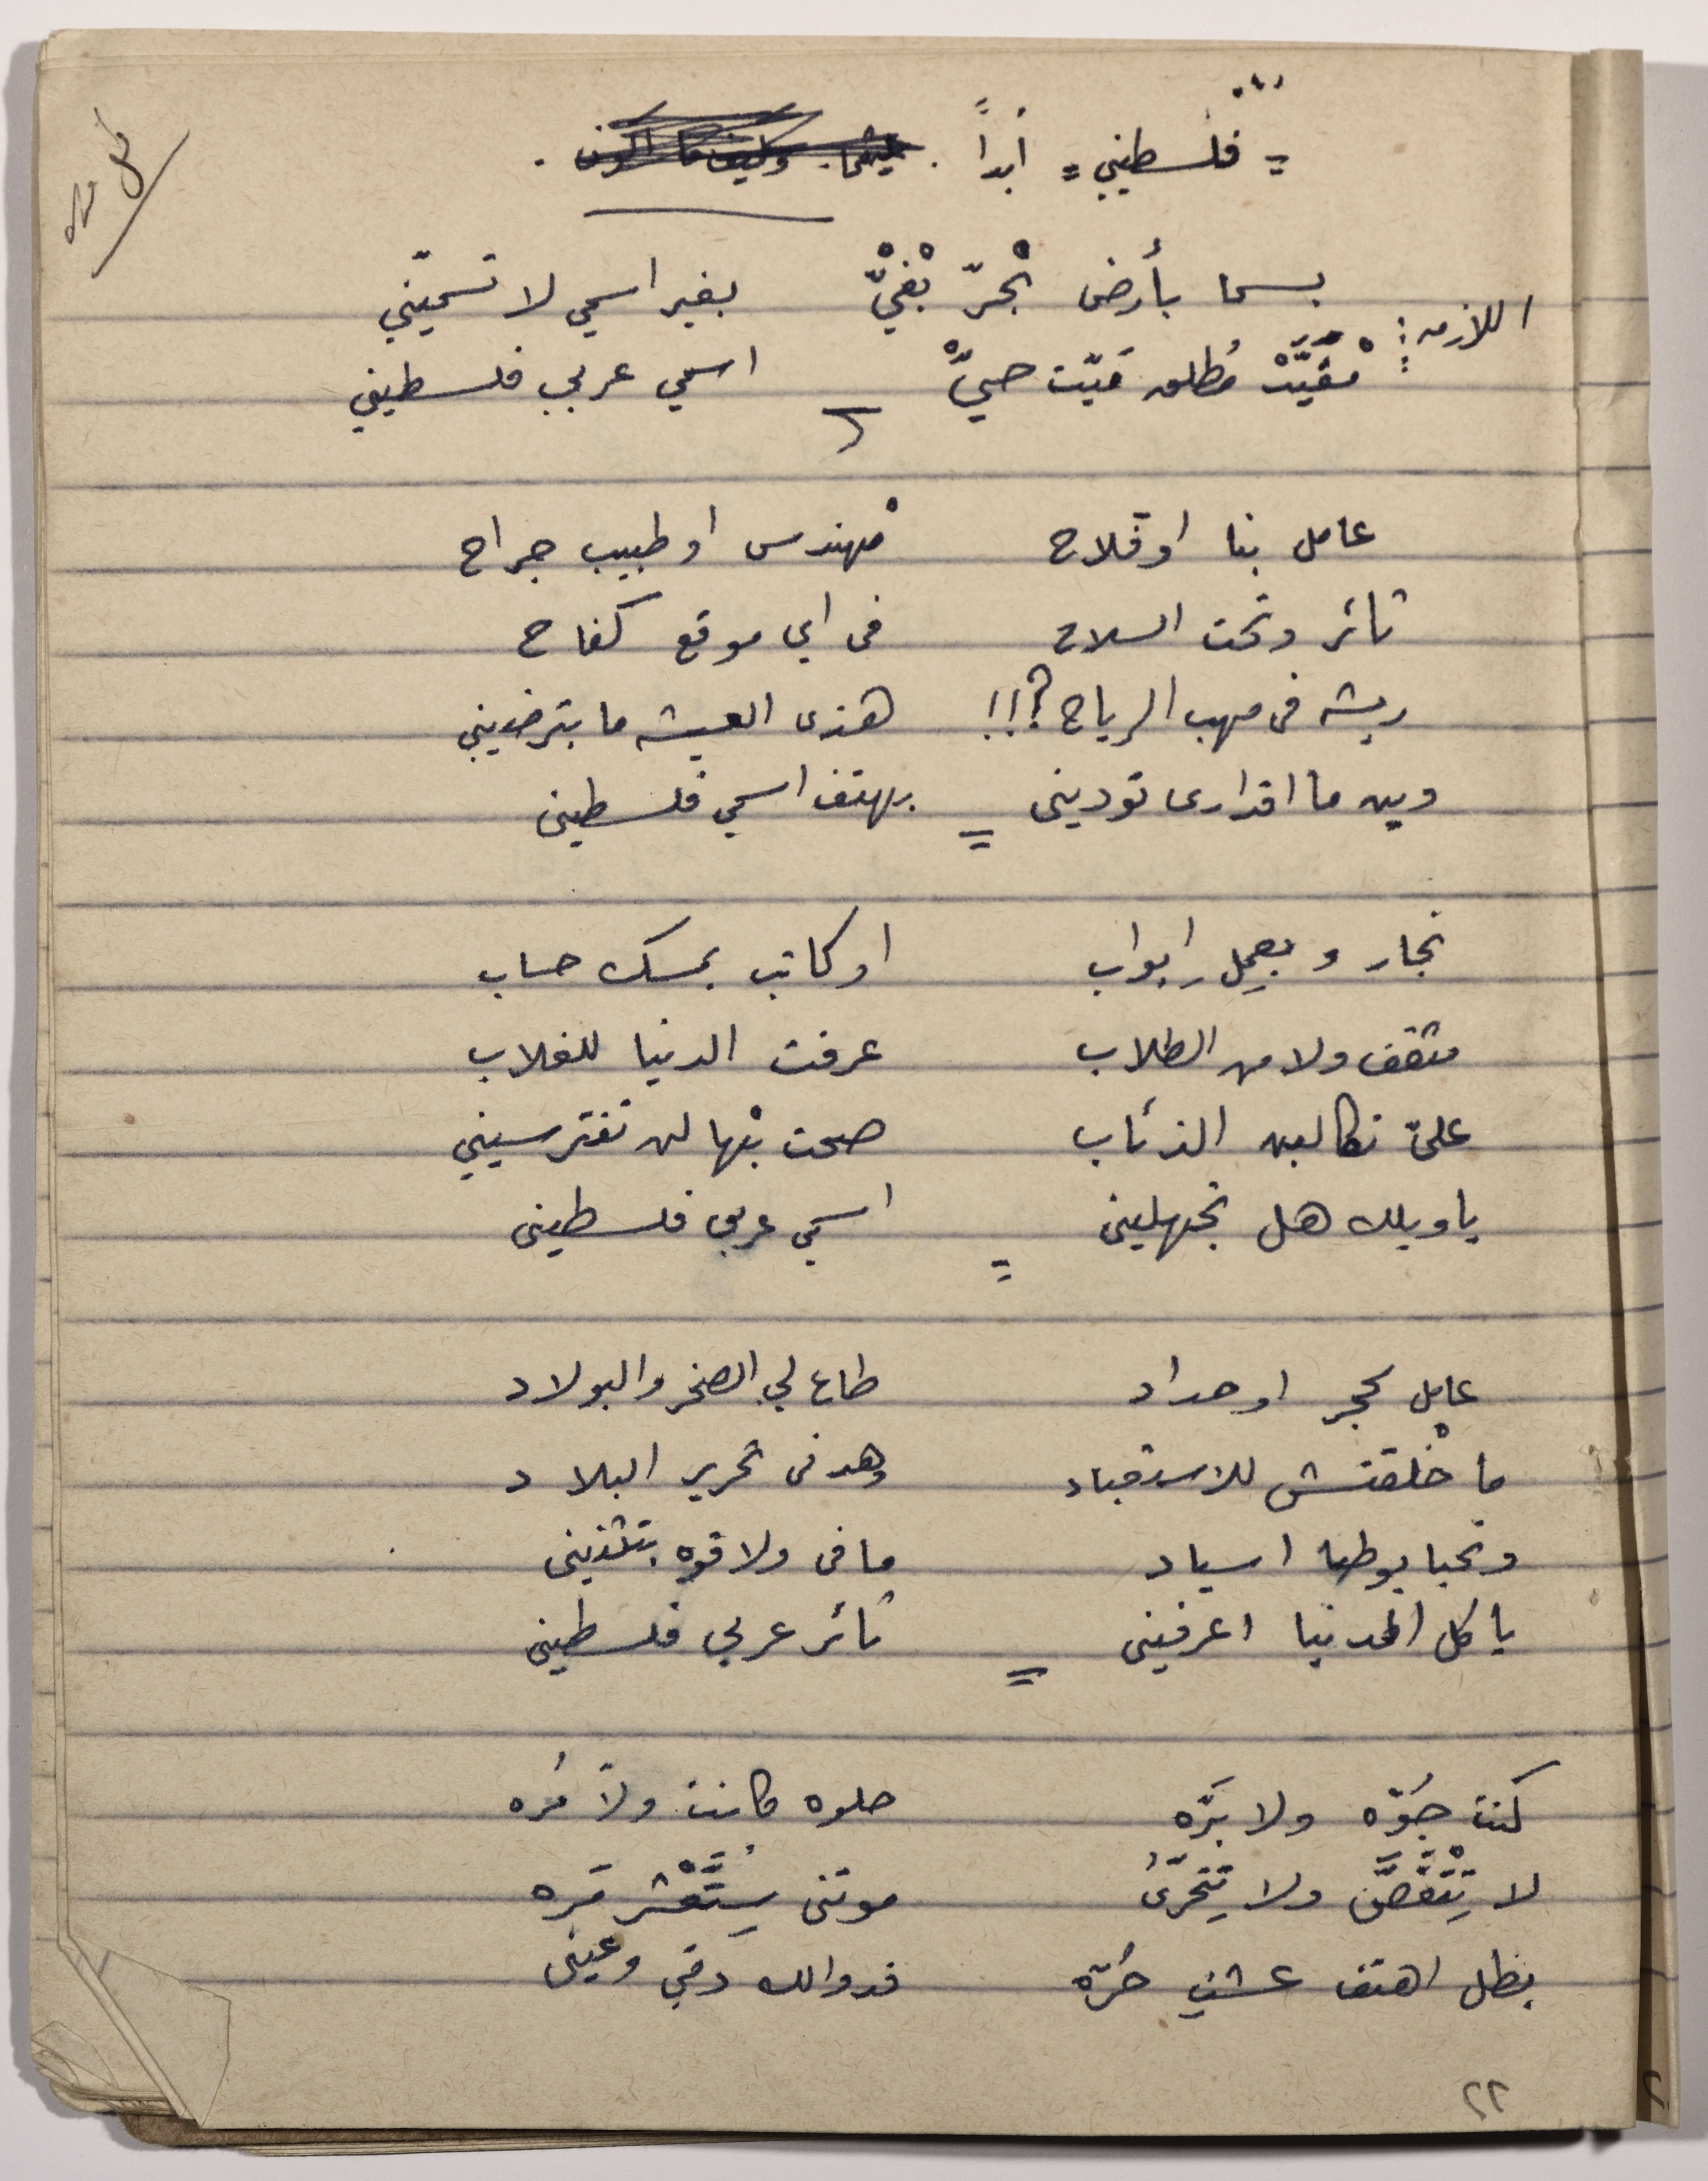 = فلسطيني = أبداً .
اللازمه : بسما بأرض بْحرّ بْفيّْ بغير اسمي لا تسميّني
مْقَيَّدْ مُطلق مَيّت حيّْ اسمي عربي فلسطيني
عامل بنا او فلاح مْهندس او طبيب جراح
ثائر وتحت السلاح في اي موقع كفاح
ريشه في مهب الرياح ؟!! هذي العيشه ما بترضيني
وين ما اقداري توديني بهتف اسمي فلسطيني
نجار و بعمِل ابواب او كاتب بمسك حساب
مثقف ولا من الطلاب عرفت الدنيا للغلاب
عليّ تكالبن الذئاب صحت بْها لن تفترسيني
يا ويلك هل تجهليني اسمي عربي فلسطيني
عامل بحجر او حداد طاع لي الصخر والبولاد
ما خْلقتش للاستعباد وهدفي تحرير البلاد
ونحيا بوطنا اسياد ما في ولا قوه بتثنيني
يا كل الدنيا اعرفيني ثائر عربي فلسطيني
كنت جُوّه ولا بَرّه حلوه كانت ولاّ مُره
لا تِتْقَصَّى ولا تِتحَرّى موتي سِتَّعْشر مَره
بظل اهتف عشتِ حُرّه فدوالك دمّي وعيني
٢٢